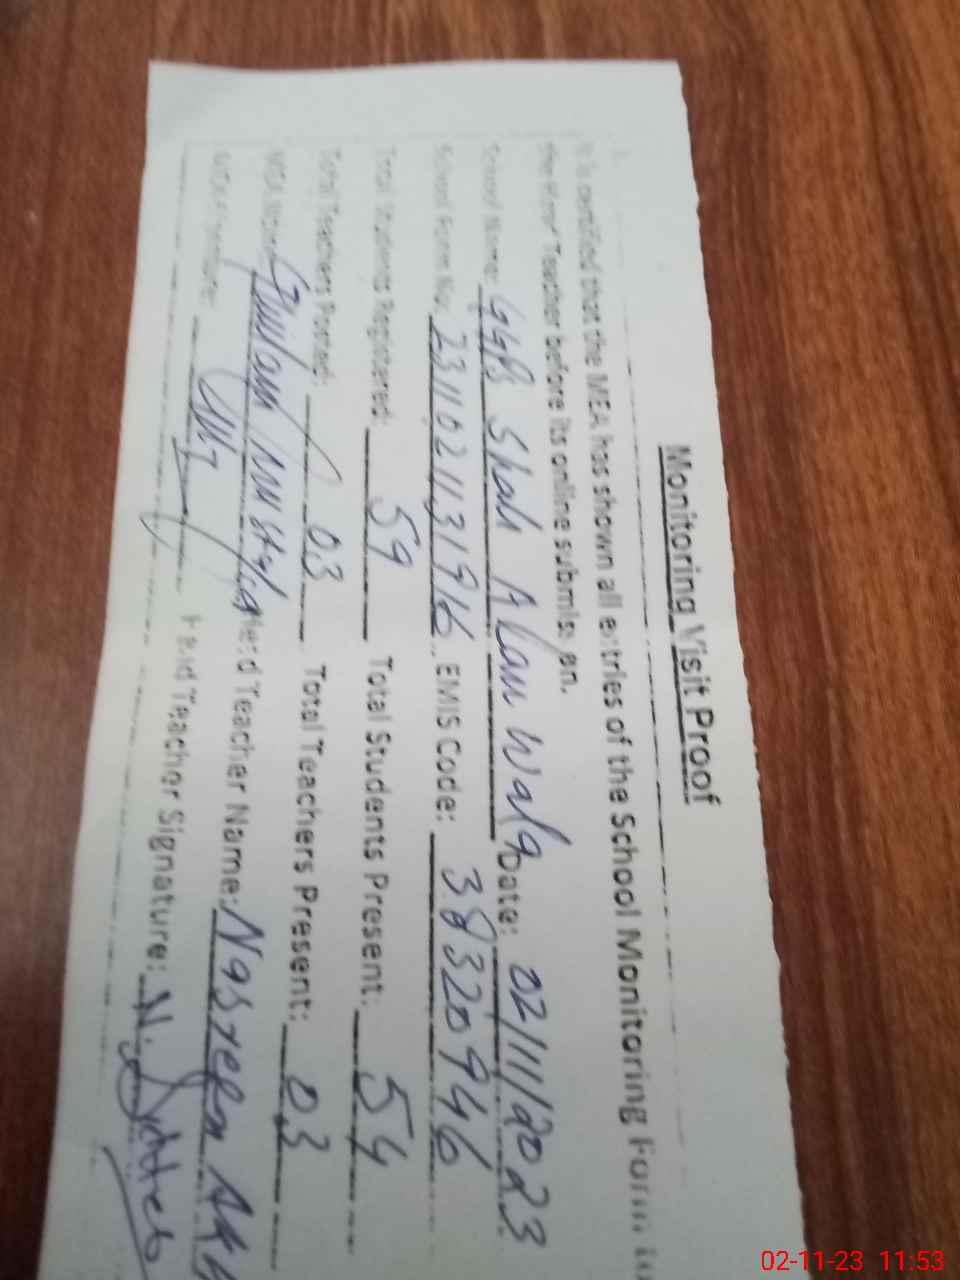 Monitoring Visit Proof
It is certified that the MEA has shown all entries of the School Monitoring Form to
the Head Teacher before its online submission.
School Name: GGPS Shah Alam Wala Date: 02/11/2023
School Form No. 2311021131916 EMIS Code: 38320946
Total Students Registered: 59 Total Students Present: 54
Total Teachers Posted: 03 Total Teachers Present: 03
MEA Name: Ghulam Mustafa Head Teacher Name: Nasreen Akh
MEA Signature: Head Teacher Signature: N. Akhter
02-11-23 11:53